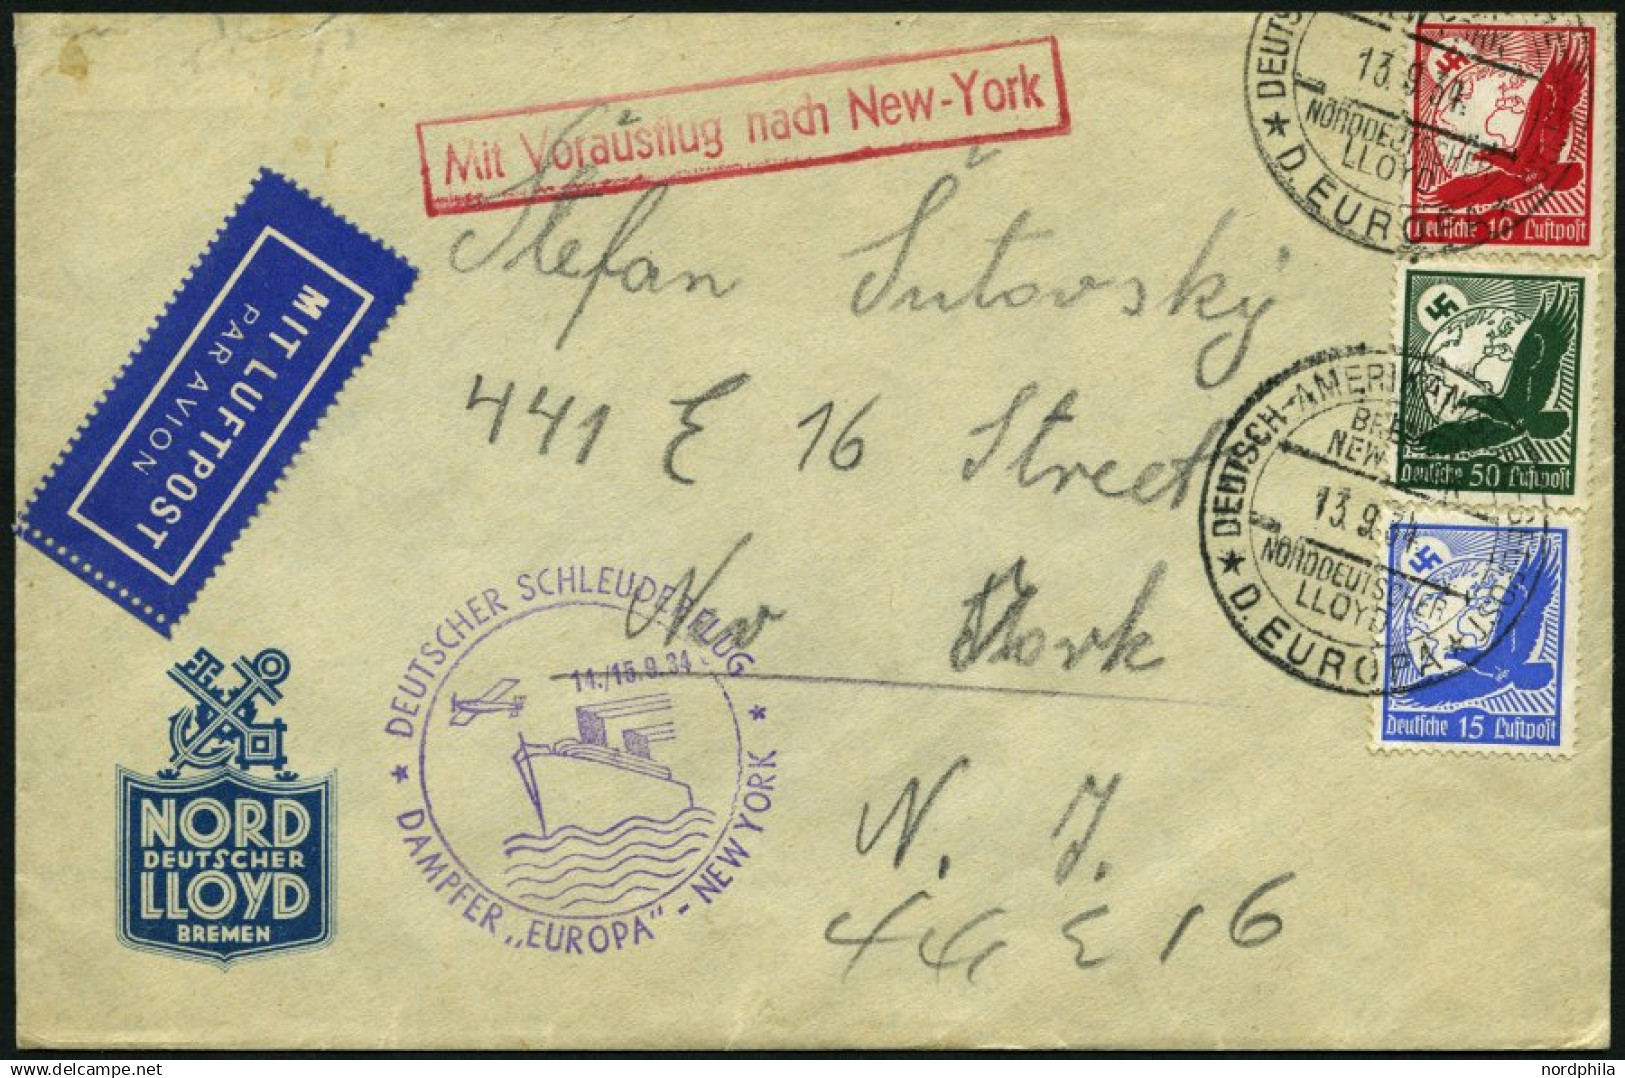 Mit Vorausflug nach New-York
13.9.34.
NORDDEUTSCHER
LLOYD
★ D. EUROPA
Deutsche 10 Luftpost
MIT LUFTPOST
PAR AVION
Štefan Šutovský
441 E 16 Street
New York
N. J.
441 E 16
Deutsche 50 Luftpost
★ DEUTSCH-AMERIKAN.
BREMEN
NEW YORK
13.9.34.
NORDDEUTSCHER
LLOYD
★ D. EUROPA ★
Deutsche 15 Luftpost
★ DEUTSCHER SCHLEUDERFLUG ★
14./15.9.34
DAMPFER „EUROPA" - NEW YORK
NORD
DEUTSCHER
LLOYD
BREMEN
nordphila